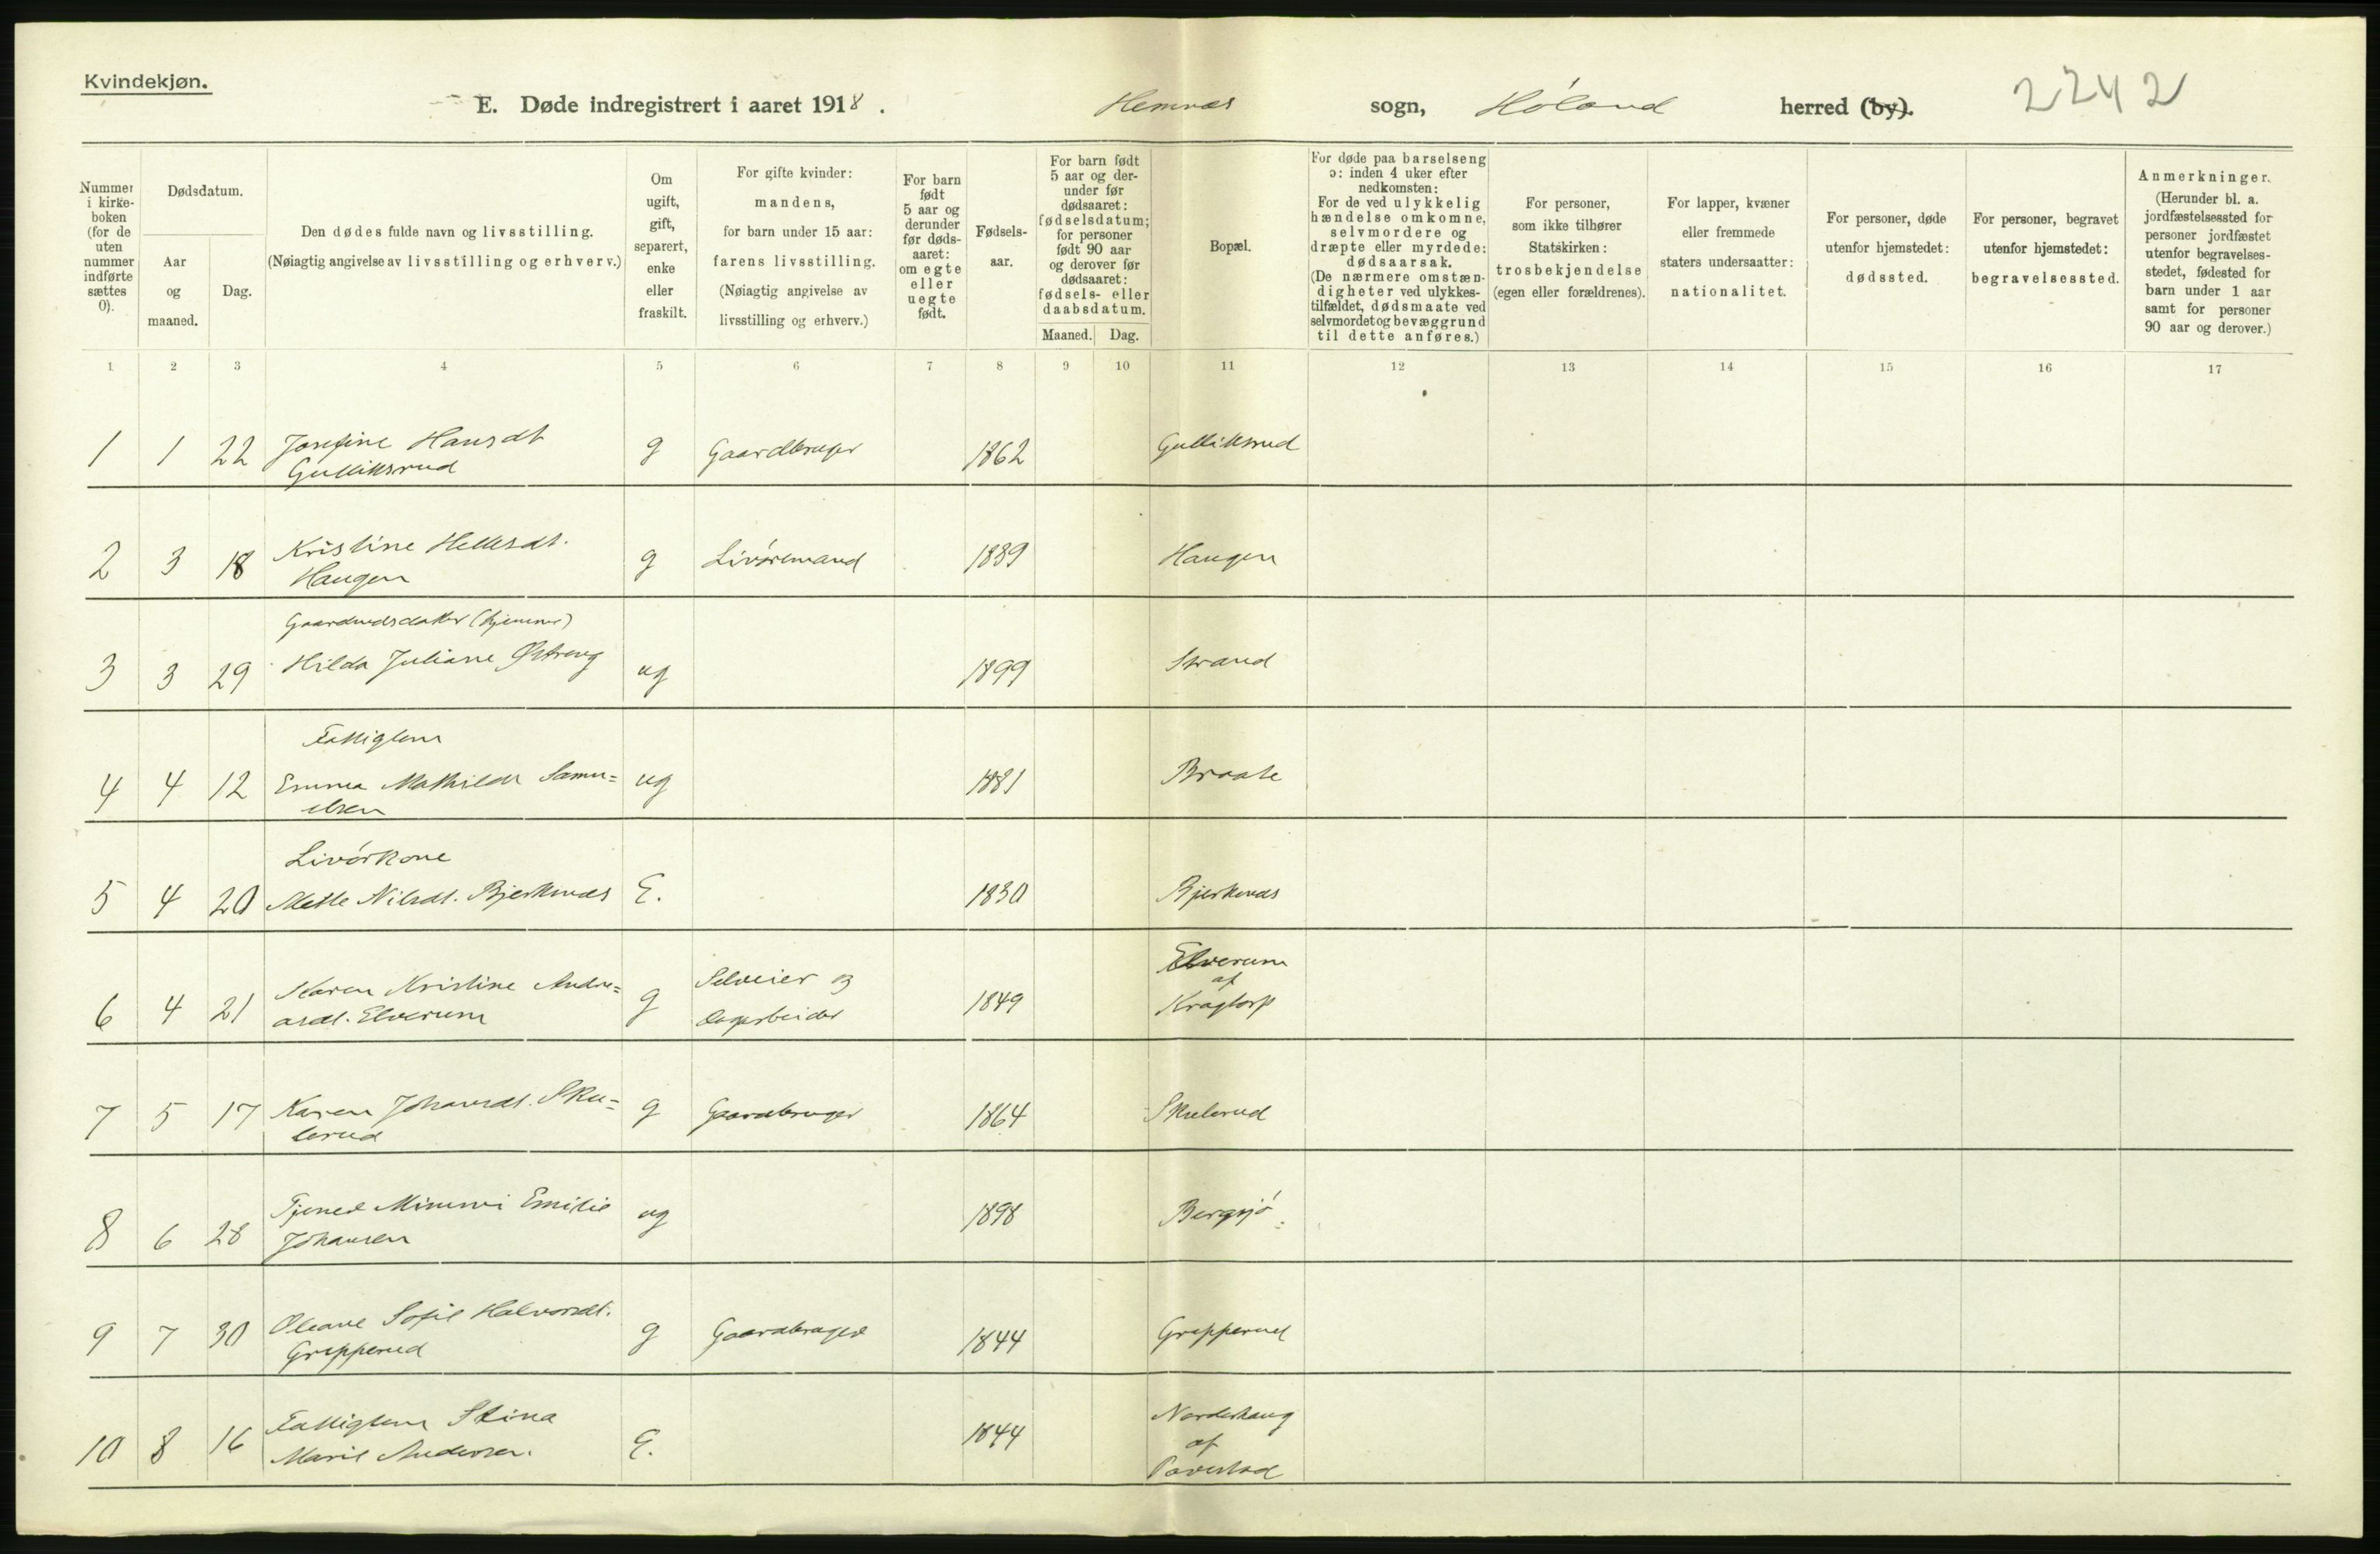 Kvindekjøn.
E. Døde indregistrert i aaret 1918. Hemnes sogn, Høland herred (by). 2242
Nummer i kirke-boken (for de uten nummer indførte sættes 0).
Dødsdatum.
Aar og maaned.
Dag.
Den dødes fulde navn og livsstilling.
(Nøiagtig angivelse av livsstilling og erhverv.)
Om ugift, gift, separert, enke eller fraskilt.
For gifte kvinder:
mandens,
for barn under 15 aar:
farens livsstilling.
(Nøiagtig angivelse av
livsstilling og erhverv.)
For barn født 5 aar og derunder før døds-aaret: om egte eller uegte født.
Fødsels-aar.
For barn født 5 aar og der-under før dødsaaret: fødselsdatum; for personer født 90 aar og derover før dødsaaret: fødsels- eller daabsdatum.
Maaned. Dag.
Bopæl.
For døde paa barselseng
ɔ: inden 4 uker efter
nedkomsten:
For de ved ulykkelig
hændelse omkomne,
selvmordere og
dræpte eller myrdede:
dødsaarsak.
(De nærmere omstæn-
digheter ved ulykkes-
tilfældet, dødsmaate ved
selvmordet og bevæggrund
til dette anføres.)
For personer,
som ikke tilhører
Statskirken:
trosbekjendelse
(egen eller forældrenes).
For lapper, kvæner
eller fremmede
staters undersaatter:
nationalitet.
For personer, døde
utenfor hjemstedet:
dødssted.
For personer, begravet
utenfor hjemstedet:
begravelsessted.
Anmerkninger.
(Herunder bl. a.
jordfæstelsessted for
personer jordfæstet
utenfor begravelses-
stedet, fødested for
barn under 1 aar
samt for personer
90 aar og derover.)
1 2 3 4 5 6 7 8 9 10 11 12 13 14 15 16 17
1 1 22 Josefine Hansdt. g Gaardbruger 1862 Gulliksrud
Gulliksrud
2 3 18 Kristine Hellesdt. g Livøremand 1839 Haugen
Haugen
Gaardmdsdatter (hjemme)
3 3 29 Hilda Juliane Østreng ug 1899 Strand
Fattiglem
4 4 12 Emma Mathilde Samu= ug 1881 Braate
elsen
Livørkone
5 4 20 Mette Nilsdt. Bjerknes E. 1830 Bjerknes
6 4 21 Karen Kristine Andre= g Selveier og 1849 Elverum
af
asdt. Elverum dagarbeider Kragtorp
7 5 17 Karen Johansdt. Sku= g Gaardbruger 1864 Skulerud
lerud
8 6 28 Tjenes Mimmi Emilie ug 1898 Bergsjø
Johansen
9 7 30 Oleane Sofie Halvorsdt. g Gaardbruger 1844 Grepperud
Grepperud
10 8 16 Fattiglem Stina E. 1844 Nordhaug
af
Marie Andersen.